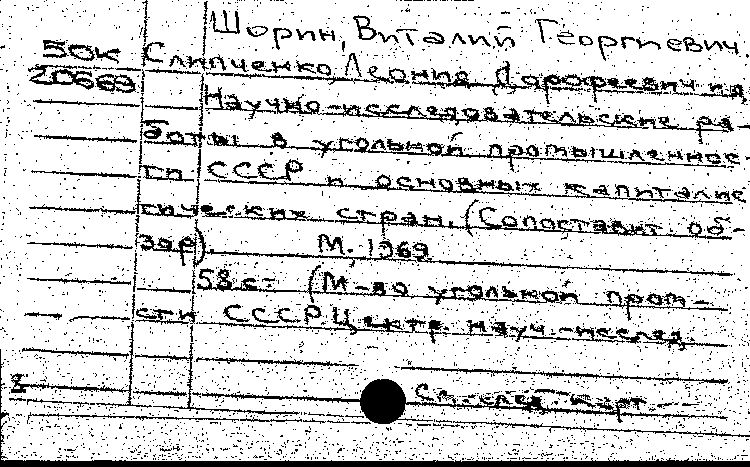 Шорин, Виталий Георгиевич.
50к Слипченко, Леонид Дорофеевич и др
20669 Научно-исследовательские ра-
боты в угольной промышленнос
ти СССР и основных капиталис
тических стран. (Сопоставит. об-
зор). М., 1969
58 с. (М-во угольной пром-
сти СССР Центр науч.-исслед.
8 См. след. карт.